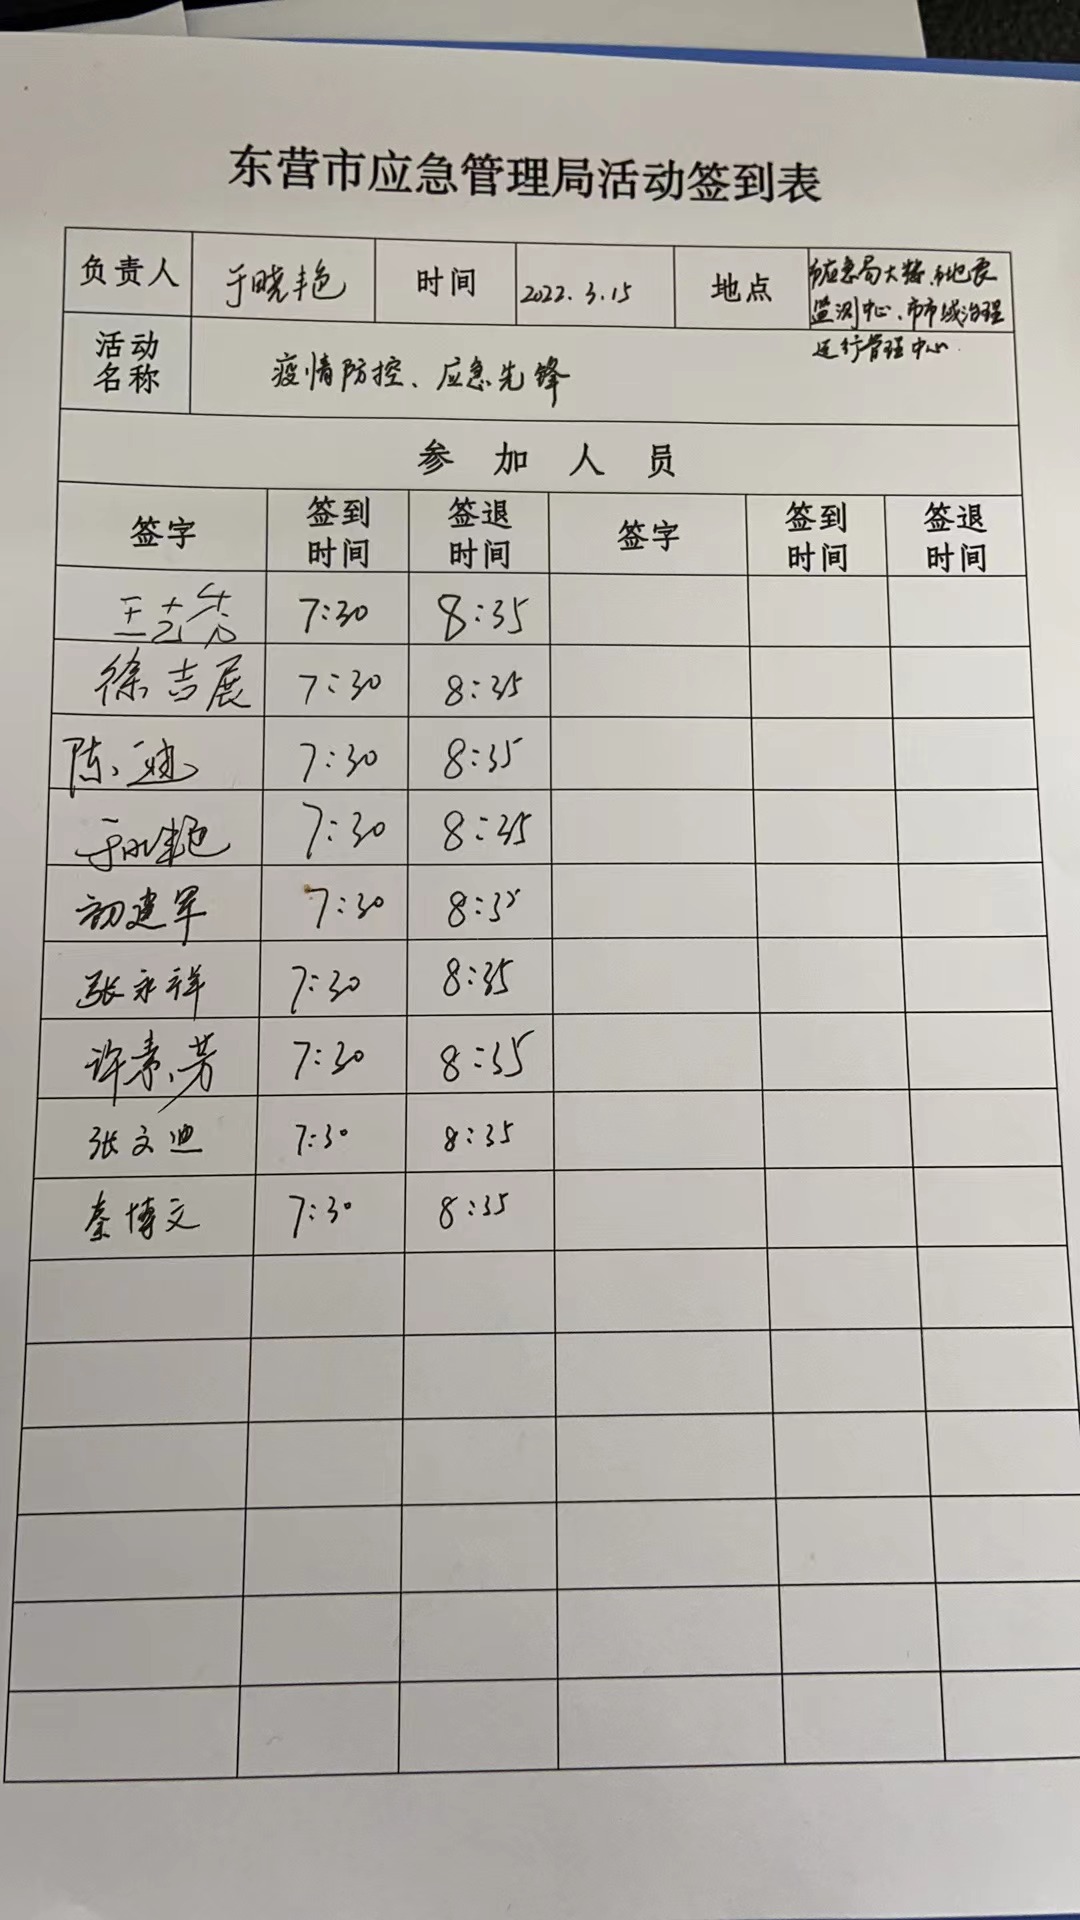 东营市应急管理局活动签到表
负责人 于晓艳 时间 2022.3.15 地点 市应急局大楼、市地震
监测中心、市市域治理
运行管理中心
活动
名称 疫情防控、应急先锋
参加人员
签字 签到时间 签退时间 签字 签到时间 签退时间
7:30 8:35
徐吉展 7:30 8:35
陈 7:30 8:35
于晓艳 7:30 8:35
初建军 7:30 8:35
张永祥 7:30 8:35
许素芳 7:30 8:35
张文迪 7:30 8:35
秦博文 7:30 8:35